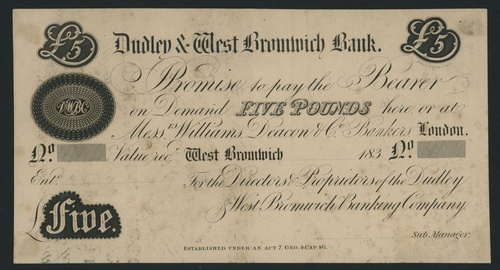 £5 Dudley & West Bromwich Bank. £5
Promise to pay the Bearer
on Demand FIVE POUNDS here or at
Mess.rs Williams Deacon & Co. Bankers London.
No Value rec.d West Bromwich 183 No
Ent.d For the Directors & Proprietors of the Dudley
£Five. & West Bromwich Banking Company.
Sub Manager.
ESTABLISHED UNDER AN ACT 7. GEO. 4 CAP. 46.